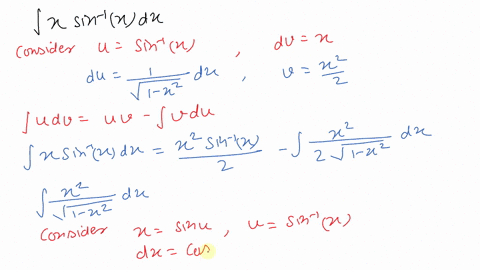 ∫ x sin⁻¹(x) dx
Consider u = sin⁻¹(x) , dv = x
du = 1/√(1-x²) dx , v = x²/2
∫ u dv = uv - ∫ v du
∫ x sin⁻¹(x) dx = x² sin⁻¹(x)/2 - ∫ x²/(2√(1-x²)) dx
∫ x²/√(1-x²) dx
Consider x = sinu , u = sin⁻¹(x)
dx = cos